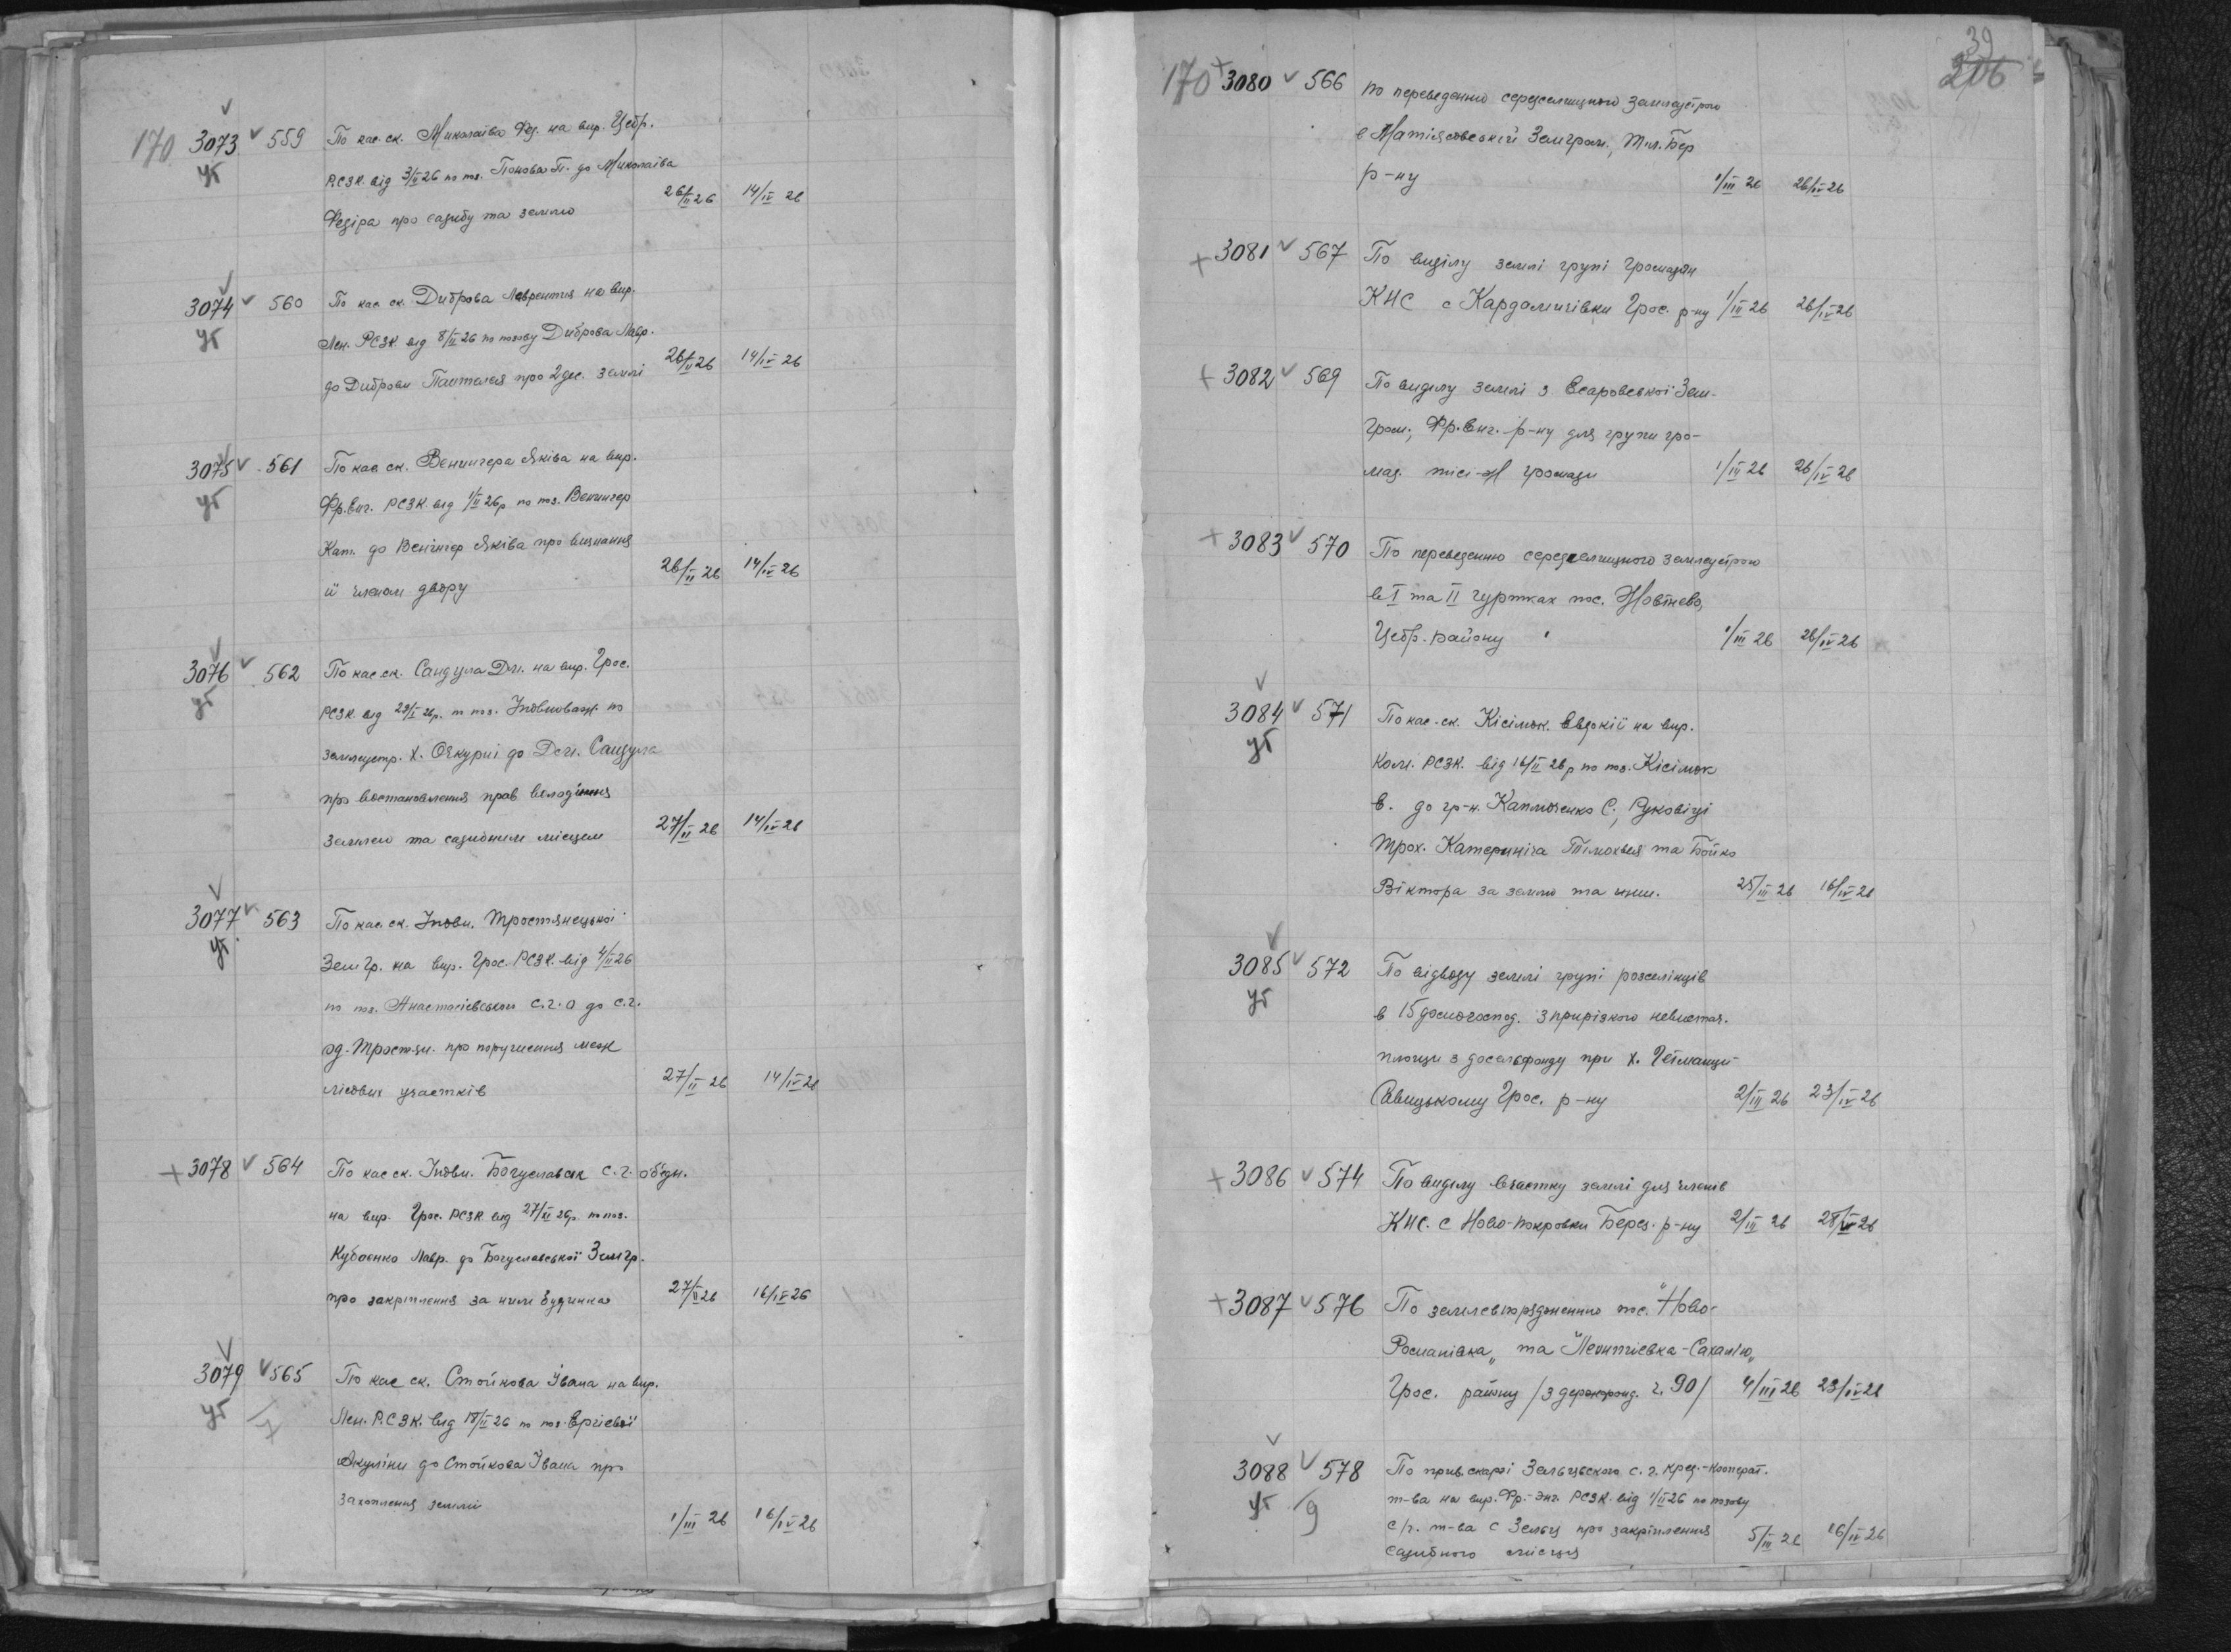 170 3073 559 По кас. ск. Миколаіва Фед. на вир. Цебр.
уг РСЗК. від 3/II 26 по поз. Попова П. до Миколаіва
Федіра про садибу та землю 26/II 26 14/IV 26
3074 560 По кас. ск. Диброва Лаврентия на вир.
уг Лен. РСЗК. від 8/II 26 по позову Диброва Лавр.
до Диброви Пантелея про 2 дес. землі 26/II 26 14/IV 26
3075 561 По кас. ск. Венингера Яківа на вир.
уг Фр. Енг. РСЗК. від 1/II 26р по поз. Венингер
Кат. до Венінгер Яківа про визнання
іі членом двору 26/II 26 14/IV 26
3076 562 По кас. ск. Сандула Дм. на вир. Грос.
уг РСЗК від 29/I 26р. п поз. Уповноваж. по
землеустр. х. до Дем. Сандула
про востановлення прав володіння
землею та садибним місцем 27/II 26 14/IV 26
3077 563 По кас. ск. Уповн. Тростянецькоі
уг Зем Гр. на вир. Грос. РСЗК. від 4/II 26
по поз. Анастасіевського с.г. о до с.г.
од. Тростян. про порушення меж
лісових участків 27/II 26 14/IV 26
3078 564 По кас ск. Уповн. Богуславск с.г. обєдн.
на вир. Грос. РСЗК від 27/ 26р. по поз.
Лавр. до Богуславськоі Зем гр.
про закріплення за ним будинка 27/II 26 16/IV 26
3079 565 По кас ск. Стойкова Івана на вир.
уг Лен. Р.СЗК. від 18/II 26 по поз. Ергіевоі
Акуліни до Стойкова Івана про
захоплення землі 1/III 26 16/IV 26
39
206
170 3080 566 по переведенню середселищного землеустрою
в Матіясовській Земгром., Тил. Бер
р-ну 1/III 26 26/IV 26
3081 567 По виділу землі групі громадян
КНС с Кардамичівки Грос. р-ну 1/III 26 26/IV 26
3082 569 По виділу землі з Зем-
Гром., Фр. Енг. р-ну для групи гро-
мад. тіеі-ж громади 1/III 26 26/IV 26
3083 570 По переведенню середселищного землеустрою
в I та II гуртках пос.
Цебр. району 1/III 26 26/IV 26
3084 571 По кас. ск. Кісілюк. Евдокіі на вир.
уг Ком. РСЗК. від 16/II 26р по поз. Кісілюк
Е. до гр-н. С., Руковіці
Трох. Катеринича Тимохвея та Бойко
Віктора за землю та инш. 25/III 26 16/IV 26
3085 572 По відводу землі групі розселінців
уг в 15 домогоспод. з прирізкою невистач.
площи з досельфонду при х. Гетманці
Савицькому Грос. р-ну 2/III 26 23/IV 26
3086 574 По виділу вчастку землі для членів
КНС. с Ново-покровки Берез. р-ну 2/III 26 28/IV 26
3087 576 По землевпорядженню пос. "Ново-
Романівка" та "Леонтіевка-Сахалію"
Грос. району /з держфонд. г. 90/ 4/III 26 23/IV 26
3088 578 По прив. скарзі Зельцьского с. г. кред.-кооперат.
уг 9 т-ва на вир. Фр.-Энг. РСЗК. від 1/II 26 по позову
с/г. т-ва с Зельц про закріплення 5/III 26 16/IV 26
садибного місця